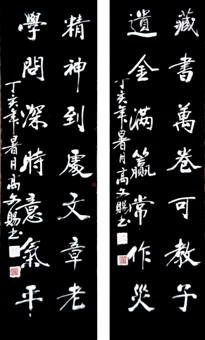 藏書萬卷可教子
遺金滿籯常作災
丁亥年暑月高文賜书
精神到處文章老
學問深時意氣平
丁亥年暑月高文賜书